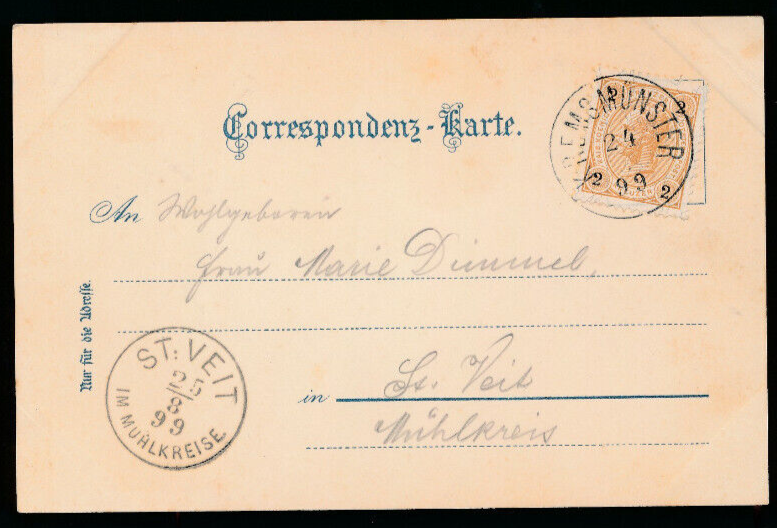 Correspondenz-Karte.
KREMSMÜNSTER
24
99
2 2
2 2
An Wohlgeboren
Frau Marie Dümmel,
Nur für die Adresse.
ST. VEIT
25
8
99
IM MÜHLKREISE.
in St. Veit
Mühlkreis